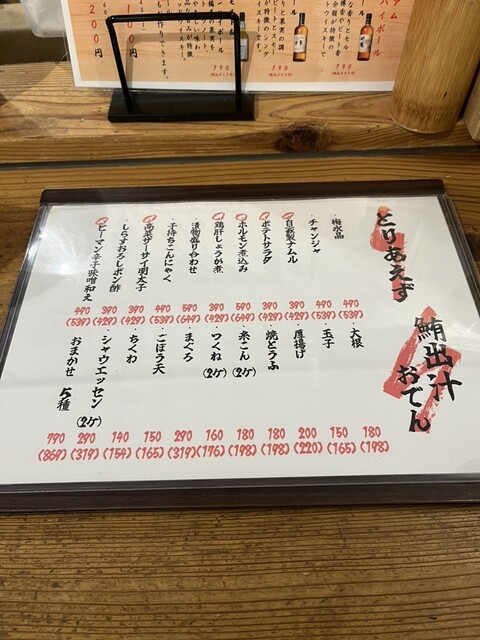 とりあえず
・梅水晶 490 (539)
・チャンジャ 490 (539)
自家製ナムル 390 (429)
ポテトサラダ 390 (429)
ホルモン煮込み 590 (649)
鶏肝しょうが煮 390 (429)
漬物盛り合わせ 590 (649)
・子持ちこんにゃく 490 (539)
高菜ザーサイ明太子 390 (429)
・しらすおろしポン酢 390 (429)
ピーマン辛子味噌和え 490 (539)
鮪出汁おでん
・大根 180 (198)
・玉子 150 (165)
・厚揚げ 200 (220)
・焼とうふ 180 (198)
・糸こん(2ケ) 180 (198)
・つくね(2ケ) 160 (176)
・まぐろ 290 (319)
・ごぼう天 150 (165)
・ちくわ 140 (154)
・シャウエッセン(2ケ) 290 (319)
おまかせ 5種 790 (869)
790
790
200円